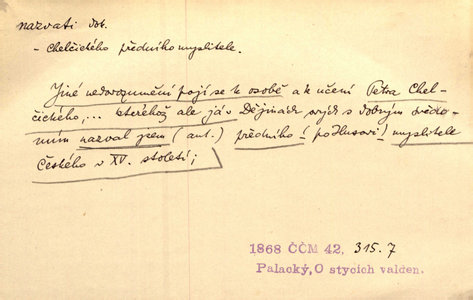 nazvati dok.
– Chelčického předního myslitele.
Jiné nedorozumění pojí se k osobě a k učení Petra Chel-
čického,... kteréhož ale já v Dějinách svých s dobrým svědo-
mím nazval jsem (ant.) předního! (po Husovi) myslitele
Českého v XV. století;
1868 ČČM 42, 315.7
Palacký, O stycích valden.